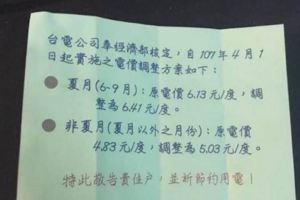 台電公司奉經濟部核定，自107年4月1
日起實施之電價調整方案如下：
夏月(6-9月)：原電價6.13元/度，調
整為6.41元/度。
非夏月(夏月以外之月份)：原電價
4.83元/度，調整為5.03元/度。
特此敬告貴住戶，並祈節約用電！